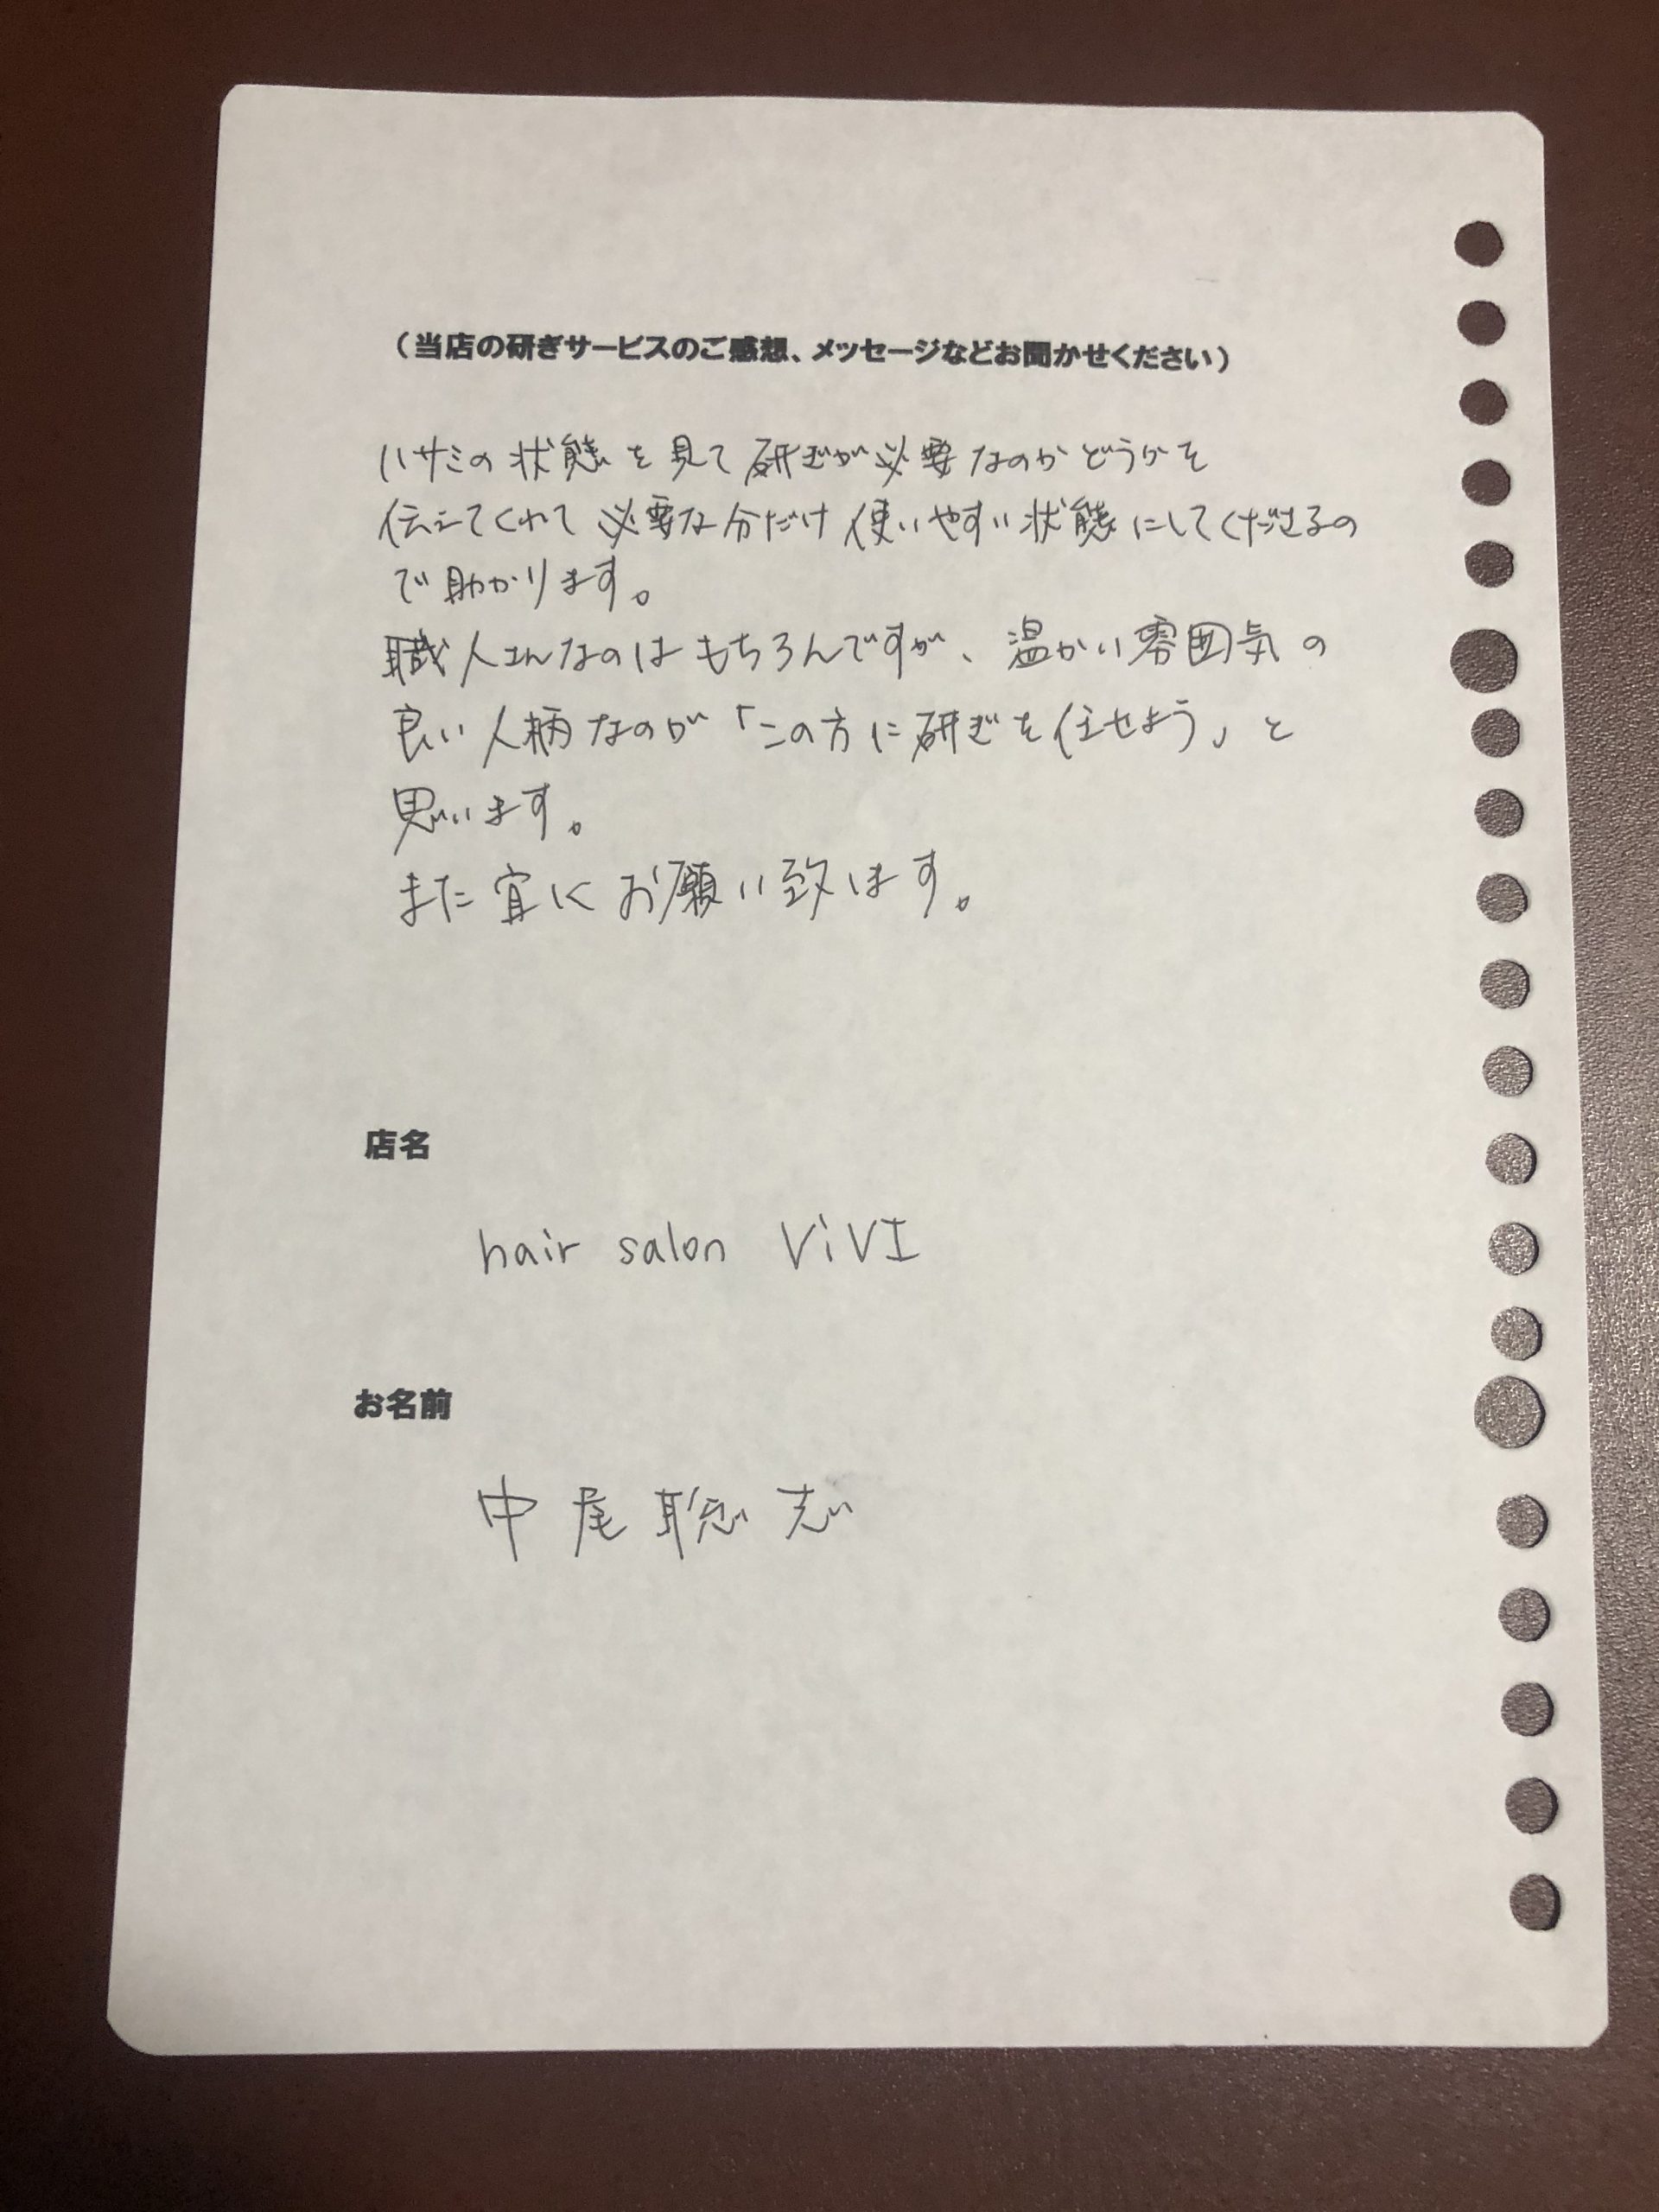 （当店の研ぎサービスのご感想、メッセージなどお聞かせください）
ハサミの状態を見て研ぎが必要なのかどうかを
伝えてくれて必要な分だけ使いやすい状態にしてくださるの
で助かります。
職人さんなのはもちろんですが、温かい雰囲気の
良い人柄なのが「この方に研ぎを任せよう」と
思います。
また宜しくお願い致します。
店名
hair salon ViVI
お名前
中尾聡志